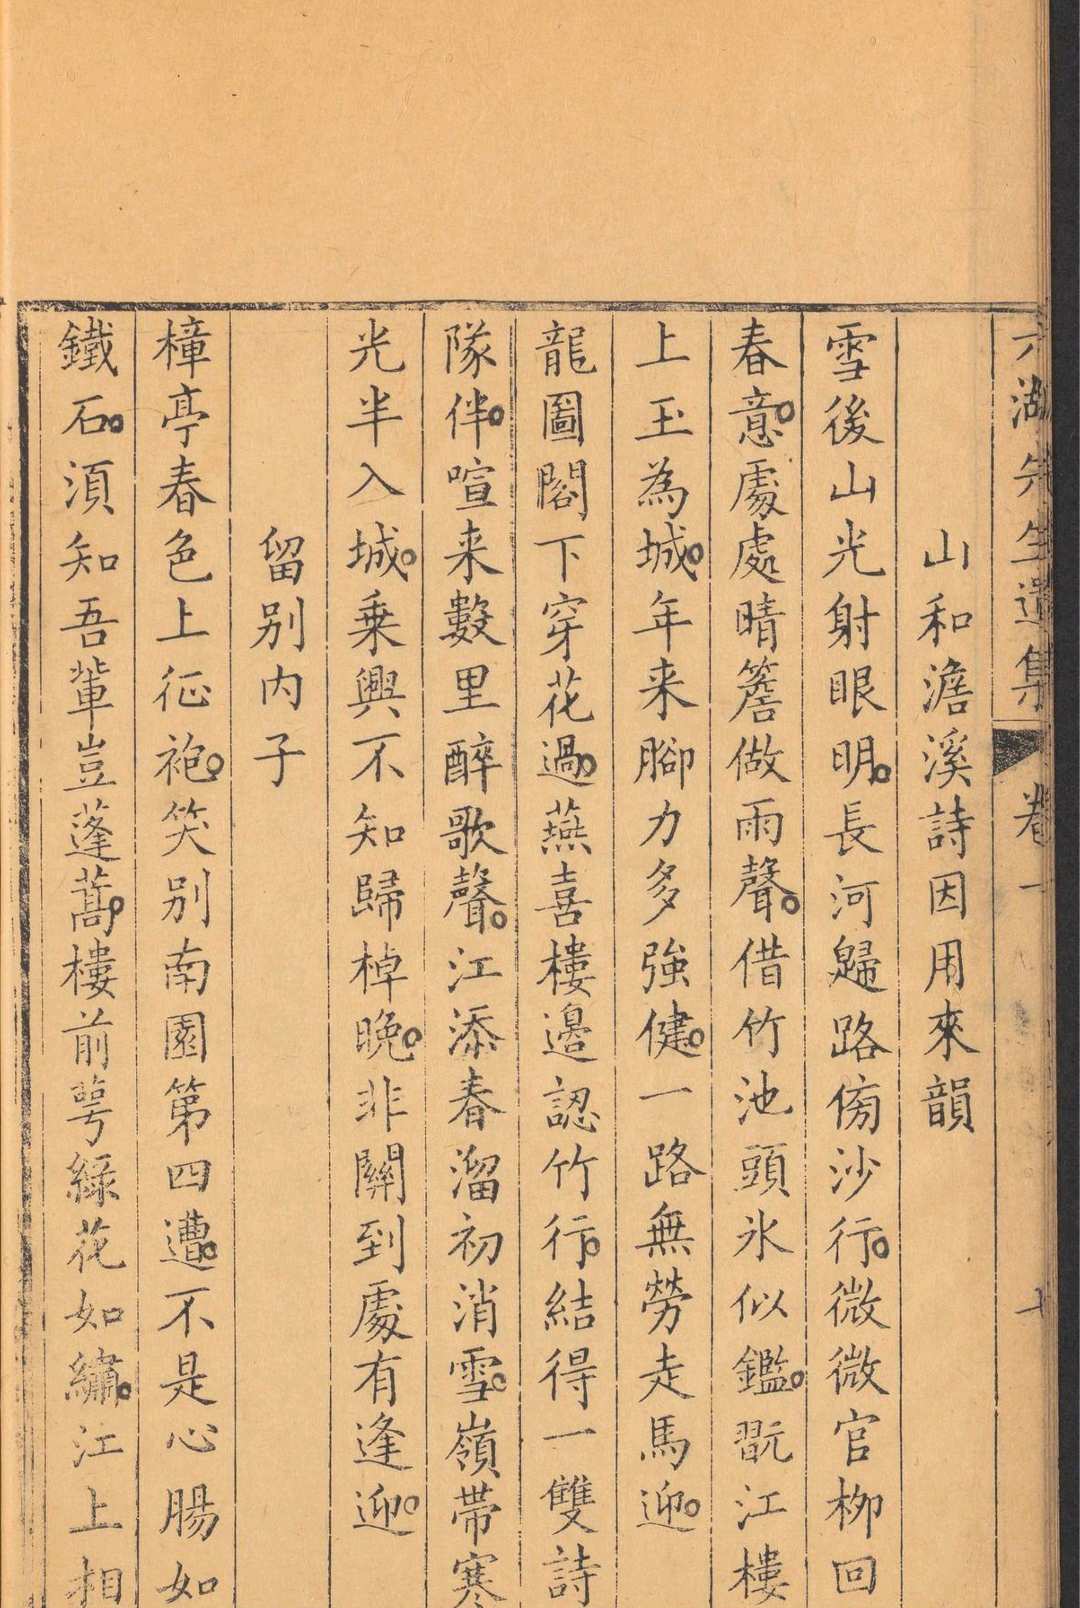 六湖先生遺集 卷一
山和澹溪詩因用來韻
雪後山光射眼明長河歸路傍沙行微微官柳回
春意處處晴簷做雨聲借竹池頭氷似鑑翫江樓
上玉為城年来腳力多強健一路無勞走馬迎
龍圖閣下穿花過燕喜樓邊認竹行結得一雙詩
隊伴喧来數里醉歌聲江添春溜初消雪嶺帶寒
光半入城乗興不知歸棹晚非關到處有逢迎
留别内子
樟亭春色上征袍笑别南園第四遭不是心腸如
鐵石須知吾輩豈蓬蒿樓前萼綠花如繡江上相